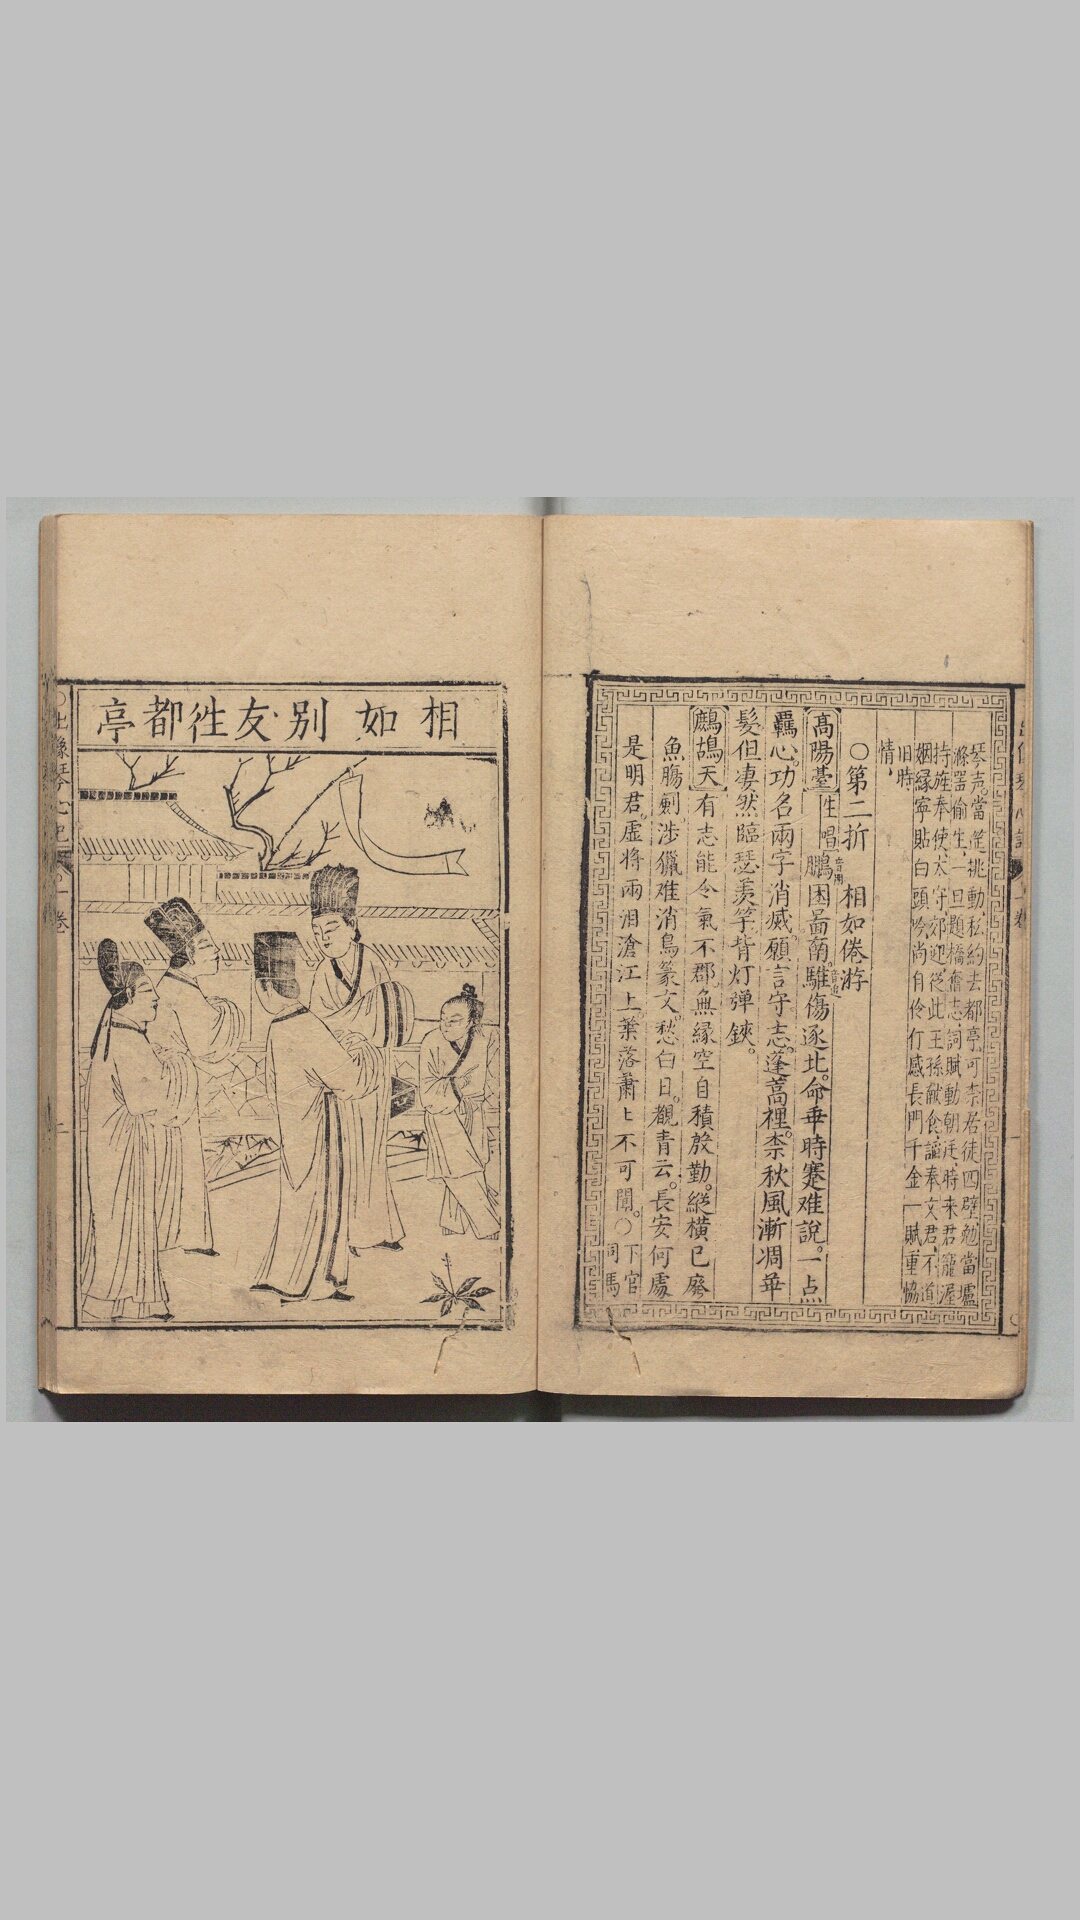 琴声。當筵挑動、私約去都亭、可柰居徒四壁勉當壚
滌器偷生、一旦題橋奮志、詞賦動朝廷、時来君寵渥
持旌奉使、太守郊迎、從此王孫獻食、諞奉文君、不道
姻緣寧貼白頭吟尚自伶仃感長門千金一賦重恊
旧時
情、
○第二折　相如倦游
高陽臺　生唱　鵬困啚南。騅傷逐北。命乖時蹇难說。一点
覊心。功名兩字消滅。願言守志。蓬蒿裡。柰秋風漸凋華
髮但凄然臨瑟羨竽背灯弹鋏。
鷓鴣天　有志能令氣不郡。無緣空自積殷勤。縱橫已廢
魚膓劍涉獵难消鳥篆文。愁白日。覩青云。長安何處
是明君。虛将兩泪滄江上。葉落蕭〻不可聞。○下官
司馬
相如別友徃都亭
○出像琴心記
一卷
一